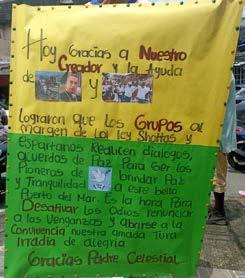 Hoy Gracias a Nuestro
Creador y la Ayuda
de y
lograron que los Grupos al
margen de la ley Shottas y
espartanos Realicen dialogos,
acuerdos de Paz Para ser los
Pioneros de brindar Paz
y Tranquilidad a este bello
Puerto del Mar. Es la hora Para
Desafivar los Odios renunciar
a las Venganzas y Abrirse a la
Convivencia nuestra amada Tura
Irradia de alegria
Gracias Padre Celestial...